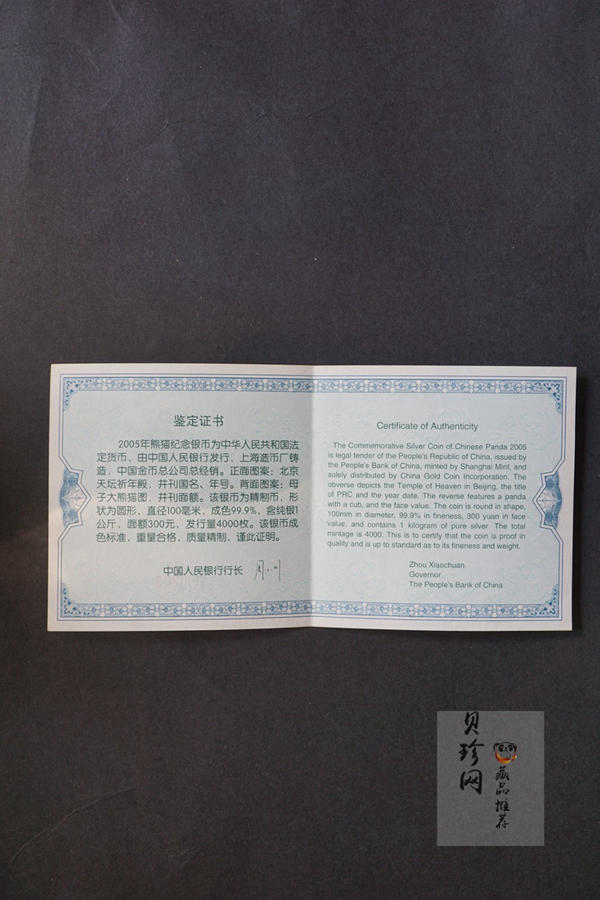 鉴定证书
2005年熊猫纪念银币为中华人民共和国法
定货币，由中国人民银行发行，上海造币厂铸
造，中国金币总公司总经销。正面图案：北京
天坛祈年殿，并刊国名、年号。背面图案：母
子大熊猫图，并刊面额。该银币为精制币，形
状为圆形，直径100毫米，成色99.9%，含纯银1
公斤，面额300元，发行量4000枚。该银币成
色标准，重量合格，质量精制，谨此证明。
中国人民银行行长
Certificate of Authenticity
The Commemorative Silver Coin of Chinese Panda 2005
is legal tender of the People's Republic of China, issued by
the People's Bank of China, minted by Shanghai Mint, and
solely distributed by China Gold Coin Incorporation. The
obverse depicts the Temple of Heaven in Beijing, the title
of PRC and the year date. The reverse features a panda
with a cub, and the face value. The coin is round in shape,
100mm in diameter, 99.9% in fineness, 300 yuan in face
value, and contains 1 kilogram of pure silver. The total
mintage is 4000. This is to certify that the coin is proof in
quality and is up to standard as to its fineness and weight.
Zhou Xiaochuan
Governor
The People's Bank of China
贝珍网
藏品推荐